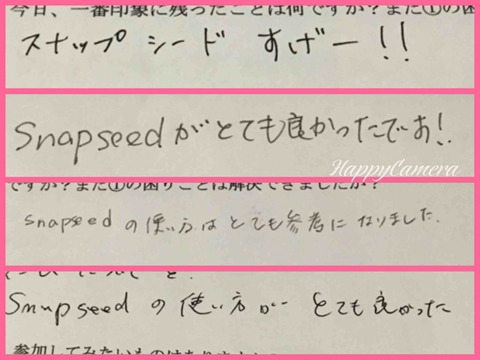 今日、一番印象に残ったことは何ですか？また①の困
スナップシード すげー!!
Snapseedがとても良かったでお!.
HappyCamera
ですか？また①の困りごとは解決できましたか？
snapseedの使い方はとても参考になりました.
Snapseedの使い方がとても良かった
参加してみたいものはありますか